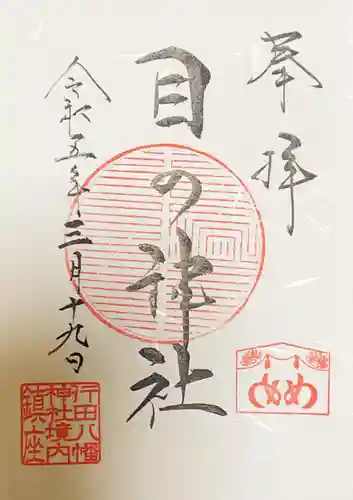 奉拝
目の神社
令和五年三月十九日
行田八幡
神社境内
鎮座
めめ